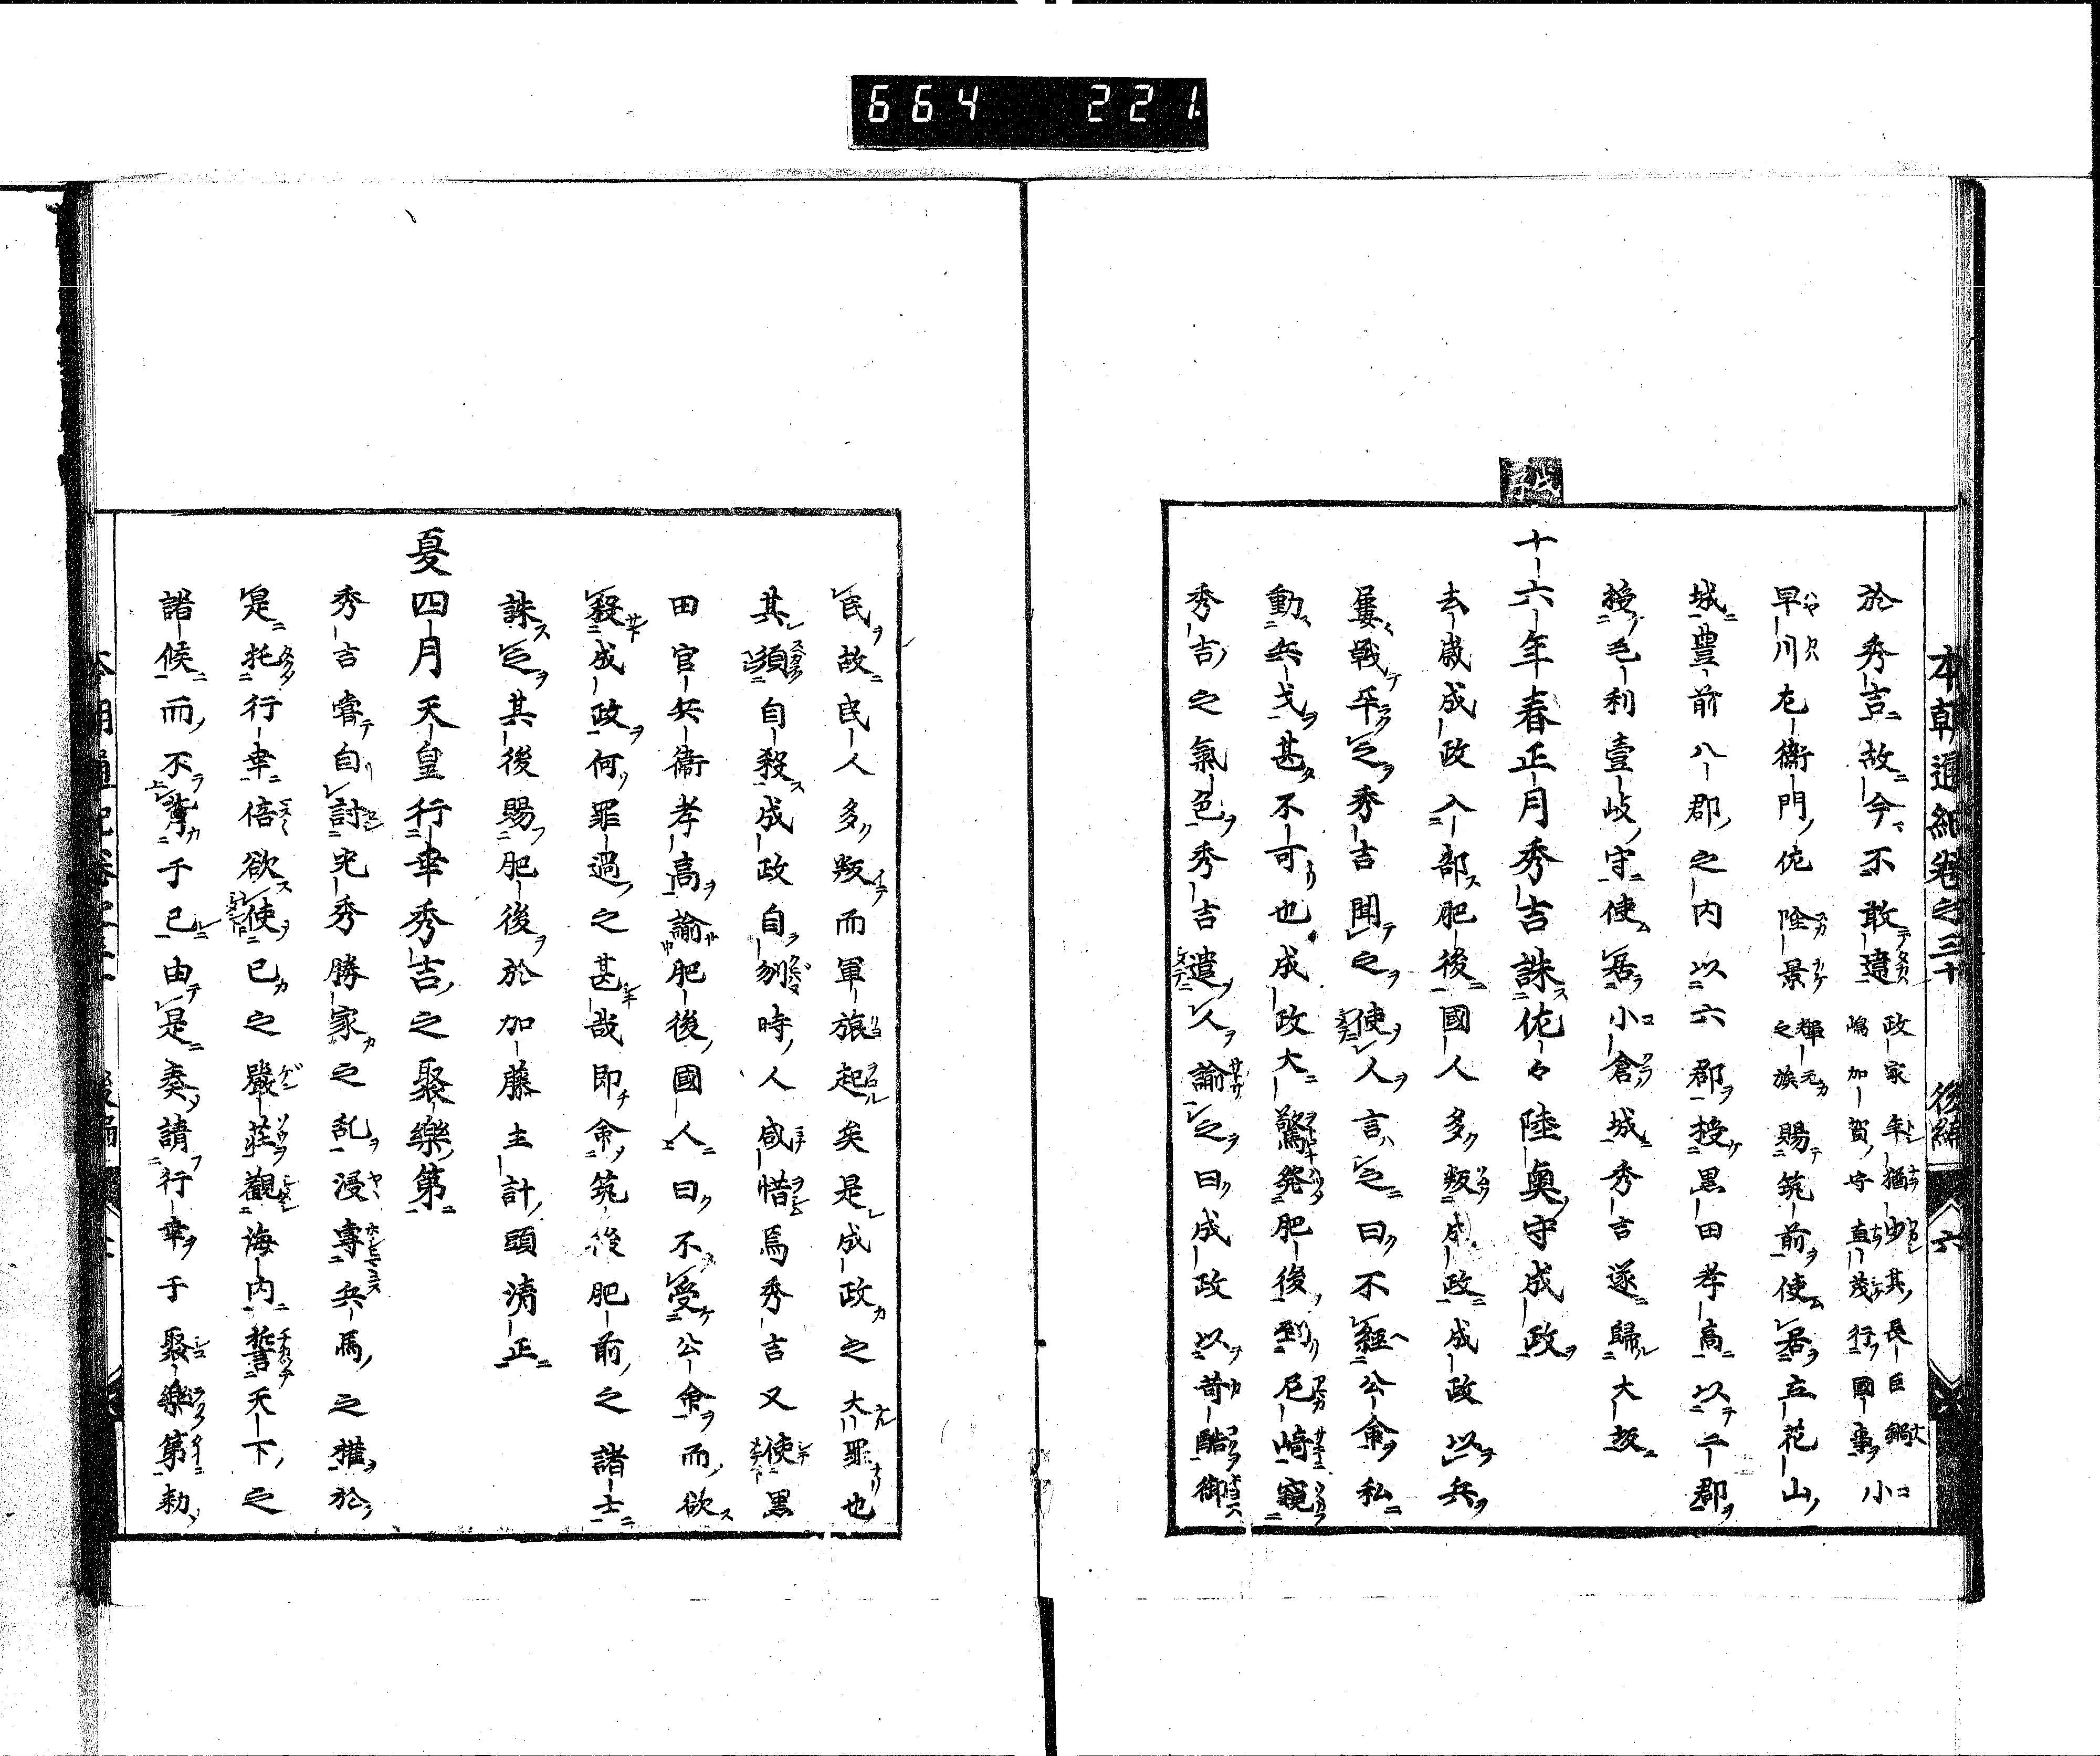 664 221
本朝通紀卷之三十 後編 六
於秀吉故今不敢違政家年猶少其長臣鍋小
嶋加賀守直茂行國事
早川左衞門佐隆景輝元之族賜筑前使居立花山
城豊前八郡之内以六郡授黒田孝高以二郡
授毛利壹岐守使居小倉城秀吉遂歸大坂
戊子
十六年春正月秀吉誅佐々陸奥守成政
去歳成政入部肥後國人多叛成政成政以兵
屢戰平之秀吉聞之使人言之曰不經公命私
動兵戈甚不可也成政大驚発肥後到尼崎窺
秀吉之氣色秀吉遣人諭之曰成政以苛酷御
民故民人多叛而軍旅起矣是成政之大罪也
其須自殺成政自刎時人咸惜焉秀吉又使黒
田官兵衞孝高諭肥後國人曰不受公命而欲
殺成政何罪過之甚哉即命筑後肥前之諸士
誅之其後賜肥後於加藤主計頭清正
夏四月天皇行幸秀吉之聚樂第
秀吉嘗自討光秀勝家之乱浸專兵馬之權於
是托行幸倍欲使己之嚴莊觀海内誓天下之
諸候而不背于己由是奏請行幸于聚樂第勅